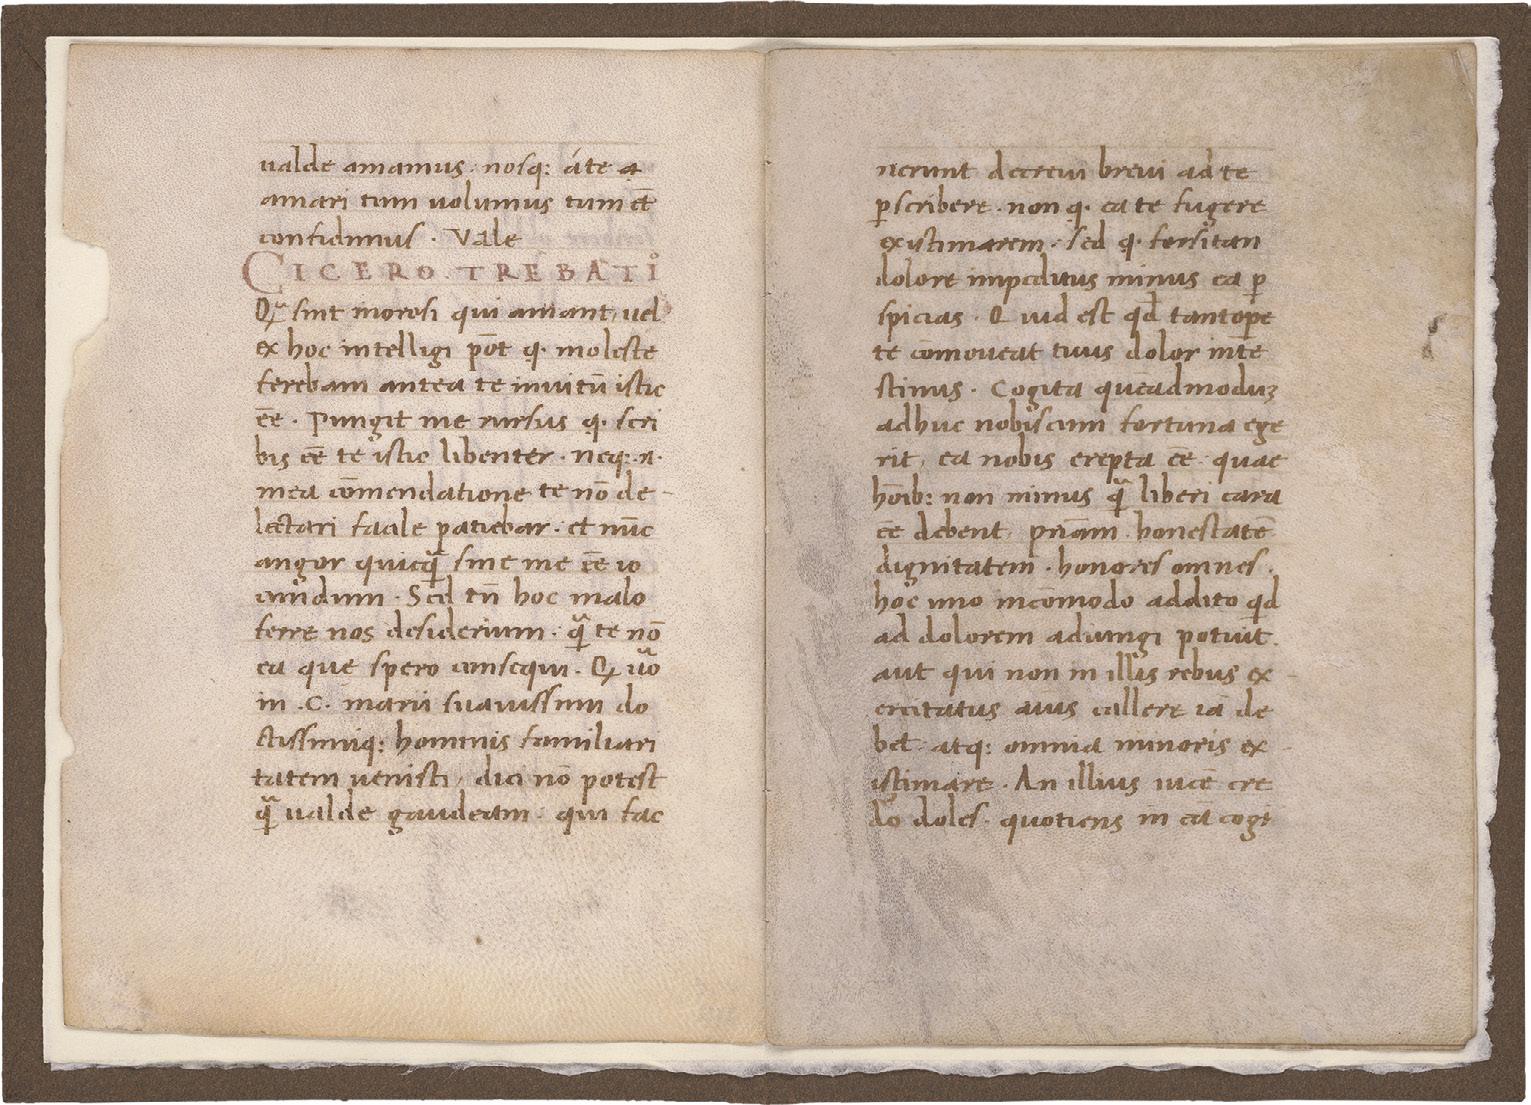 ualde amamus · nosq: áte a
amari tum uolumus tum et̄
confidimus · Vale
CICERO · TREBATIO
Qᷓ sint morosi qui amant, uel
ex hoc intelligi pōt q· moleste
ferebam antea te inuitū istic
ēe · Pungit me rursus q· scri
bis ēe te istic libenter · neq: n·
mea cōmendatione te nō de-
lectari facile patiebar · et nūc
angor quicqᷓ sine me ēe io
cundum · Sed tn̄ hoc malo
ferre nos desiderium · qᷓ te nō
ea que spero consequi · Q uͦo
in · C · marii suauissimi do
ctissimiq: hominis familiari
tatem uenisti, dici nō potest
qᷓ ualde gaudeam · qui fac
nerunt decreui breui ad te
ꝑscribere · non q· ea te fugere
existimarem · sed q· forsitan
dolore impeditus minus ea ꝑ
spicias · Quid est qd tantoꝑe
te cōmoueat tuus dolor inte
stinus · Cogita quēadmoduʒ
adhuc nobiscum fortuna ege
rit, ea nobis erepta ēe · quae
hōib: non minus qᷓ liberi cara
ēe debent, pr̄iam · honestatē
dignitatem · honores omnes ·
hoc uno incōmodo addito qd
ad dolorem adiungi potuit ·
aut qui non in illis rebus ex-
ercitatus aīus callere iā de
bet · atq: omnia minoris ex-
istimare · An illius uicē cre
do doles · quotiens in eā cogi